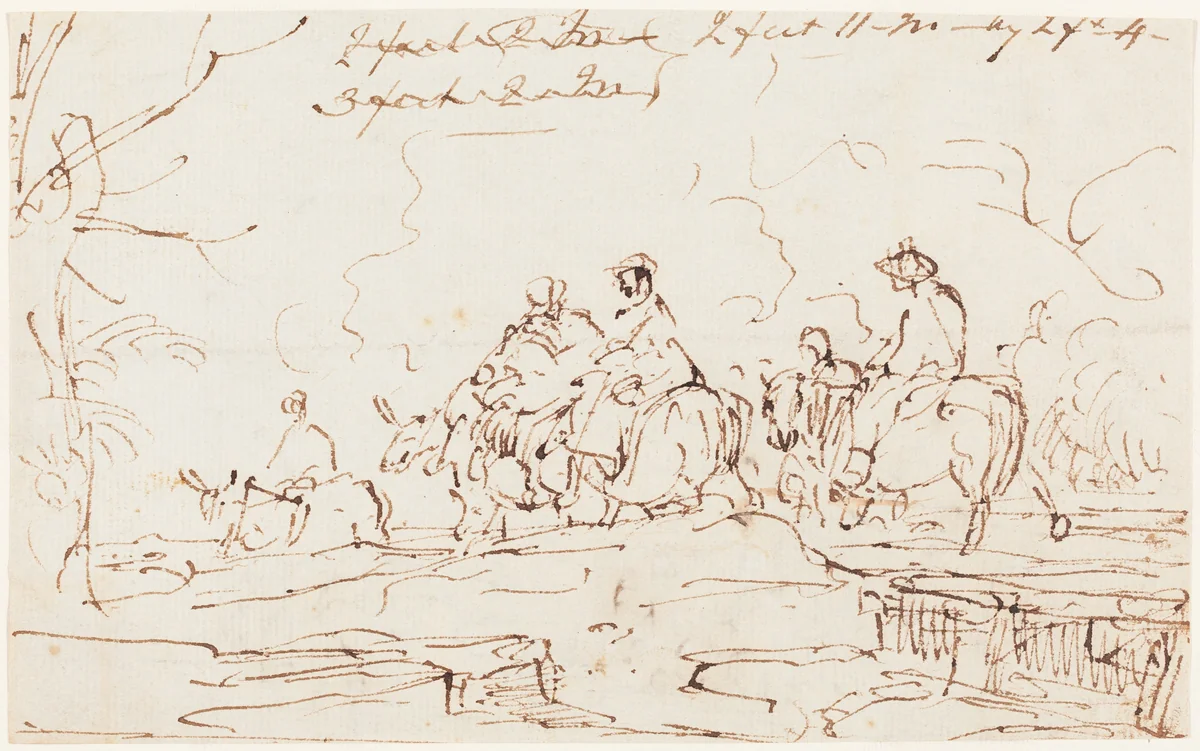 2 feet 2 In 2 feet 11 - In - by 2 ft 4 -
3 feet 2 In